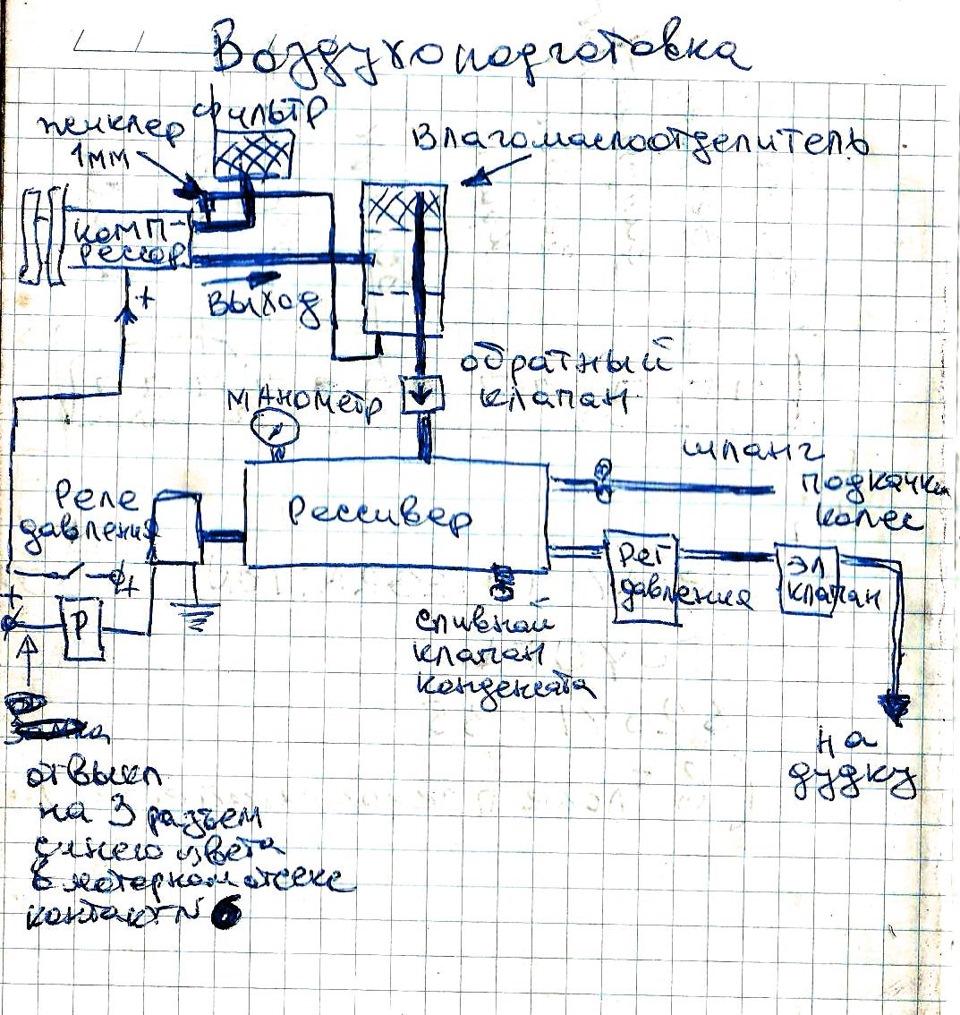 Воздухоподготовка
фильтр
жиклер
1мм
Влагомаслоотделитель
комп-
рессор
+
выход
обратный
клапан
манометр
шланг
подкачки
колес
Реле
давления
Рессивер
Рег
давления
эл
клапан
+
+
Р
сливной
клапан
конденсата
на
дудку
от выкл
на 3 разъем
синего цвета
в моторном отсеке
контакт N 6